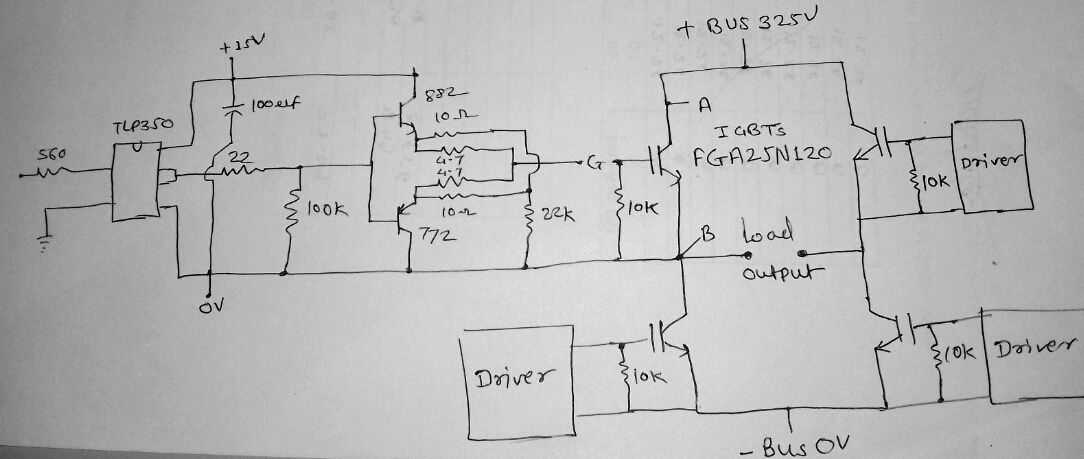 + BUS 325V
+15V
100uf
TLP350
560
22
100K
0V
882
10Ω
4.7
4.7
10Ω
772
22K
G
10K
A
IGBTs
FGA25N120
B
Load
output
Driver
10K
Driver
10K
10K
Driver
- Bus 0V